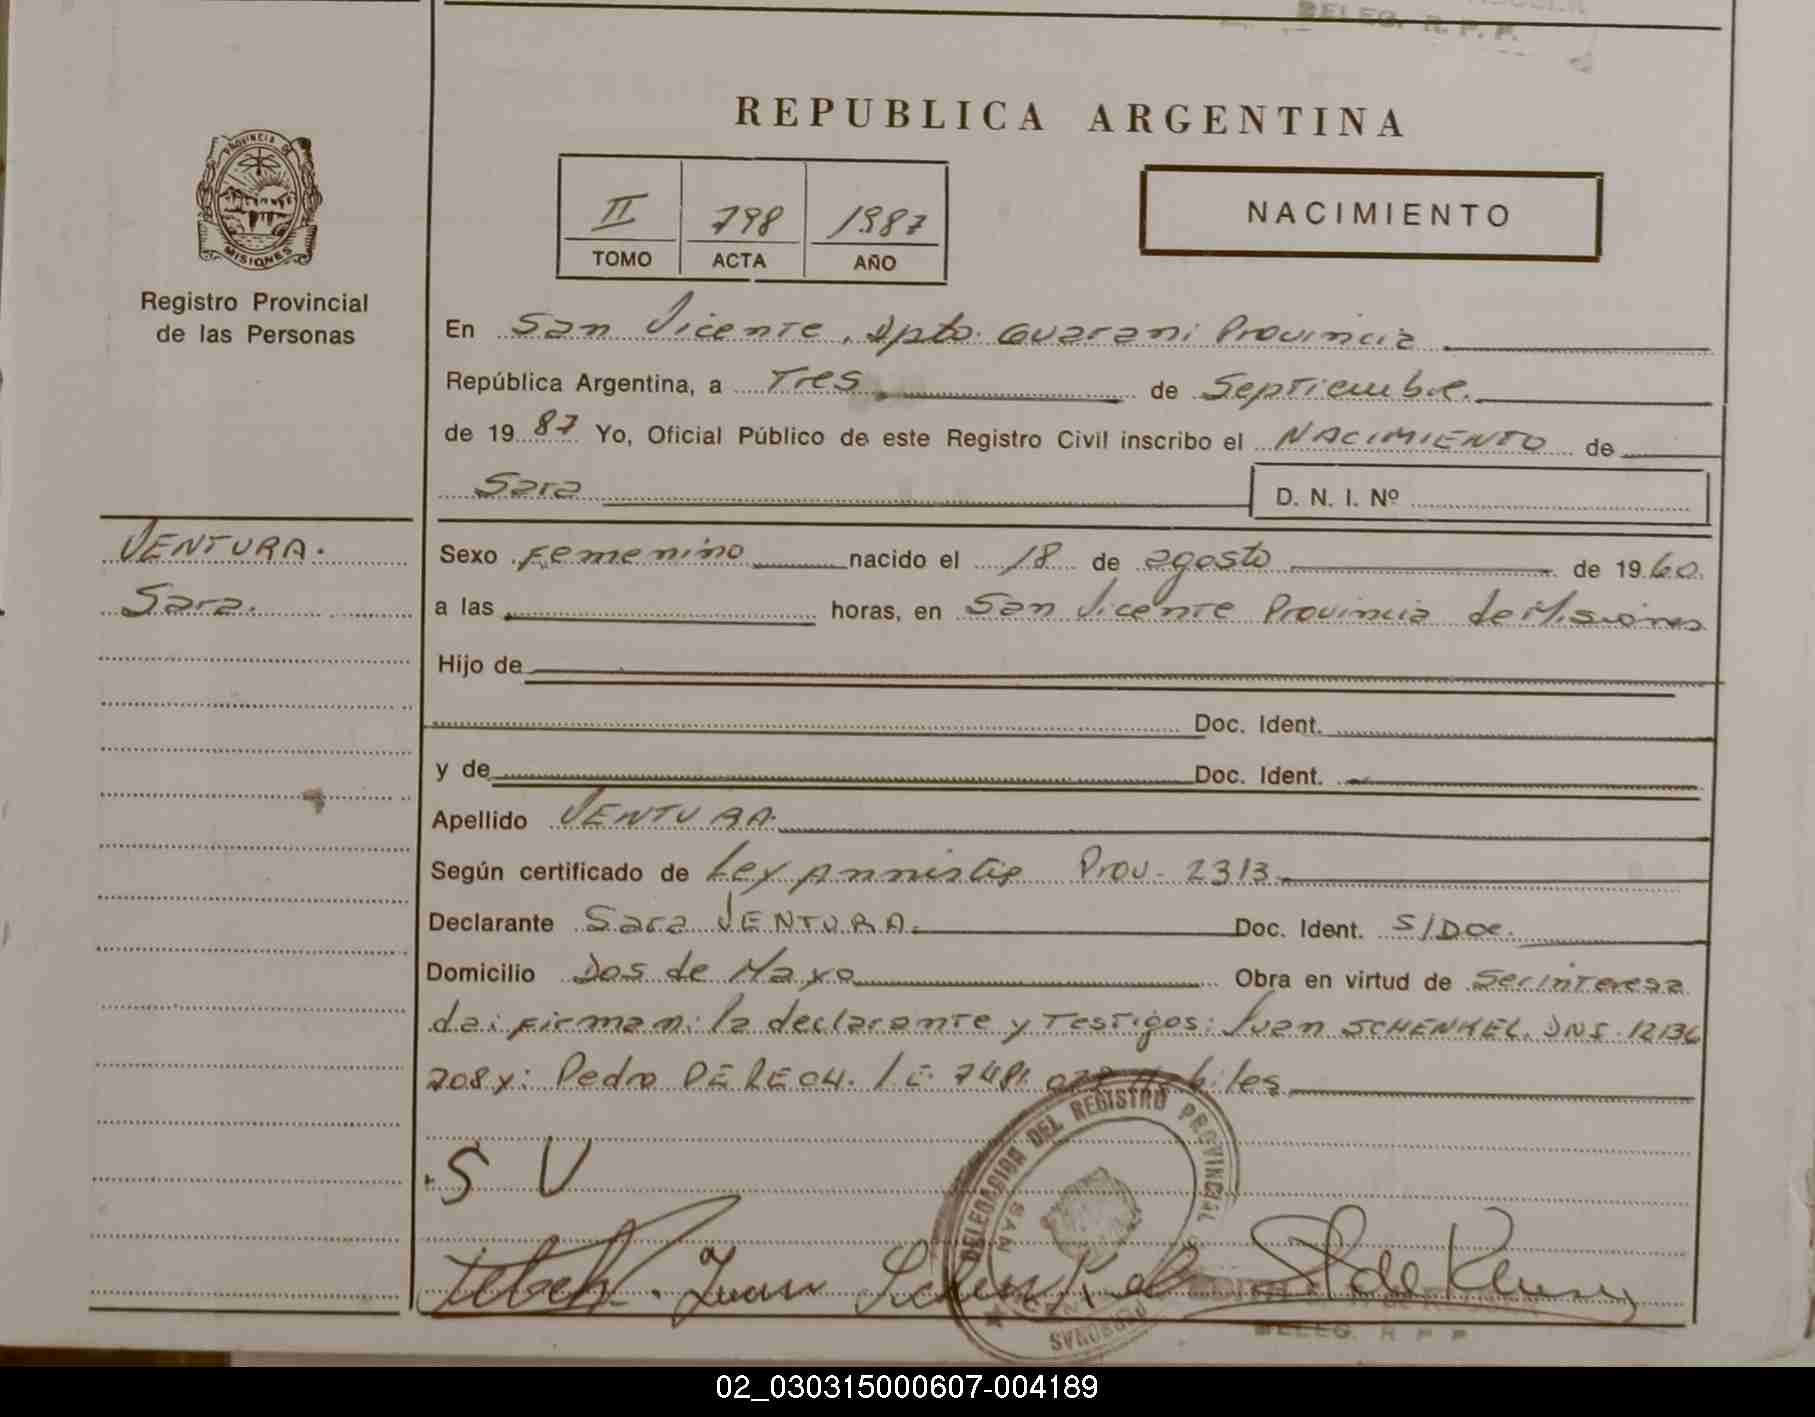 DELEG. R. P. P.
REPUBLICA ARGENTINA
PROVINCIA DE
MISIONES
II 798 1987
TOMO ACTA AÑO
NACIMIENTO
Registro Provincial
de las Personas
En San Vicente, Dpto. Guarani Provincia
República Argentina, a Tres de Septiembre.
de 1987 Yo, Oficial Público de este Registro Civil inscribo el NACIMIENTO de
Sara D. N. I. Nº
VENTURA.
Sara.
Sexo Femenino nacido el 18 de agosto de 1960.
a las horas, en San Vicente Provincia de Misiones
Hijo de
Doc. Ident.
y de Doc. Ident.
Apellido VENTURA.
Según certificado de Ley Amnistia Prov. 2313
Declarante Sara VENTURA. Doc. Ident. S/Doc.
Domicilio Dos de Mayo Obra en virtud de Ser interesa
da: firman: la declarante y Testigos: Juan SCHENKEL. DNI. 12136
708 y: Pedro L.E. 7481
S V
DELEGACION DEL REGISTRO PROVINCIAL
PERSONAS
SAN VICENTE
Juan Schenkel
DELEG. R P P
02_030315000607-004189